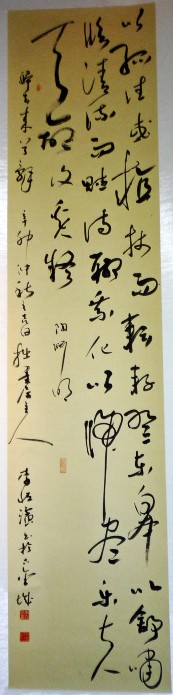 以孤往或植杖而耘耔登東皋以舒嘯
臨清流而賦詩聊乘化以歸盡樂夫
天命復奚疑
陶淵明
歸去來兮辭 辛卯仲秋之吉日 主人
李